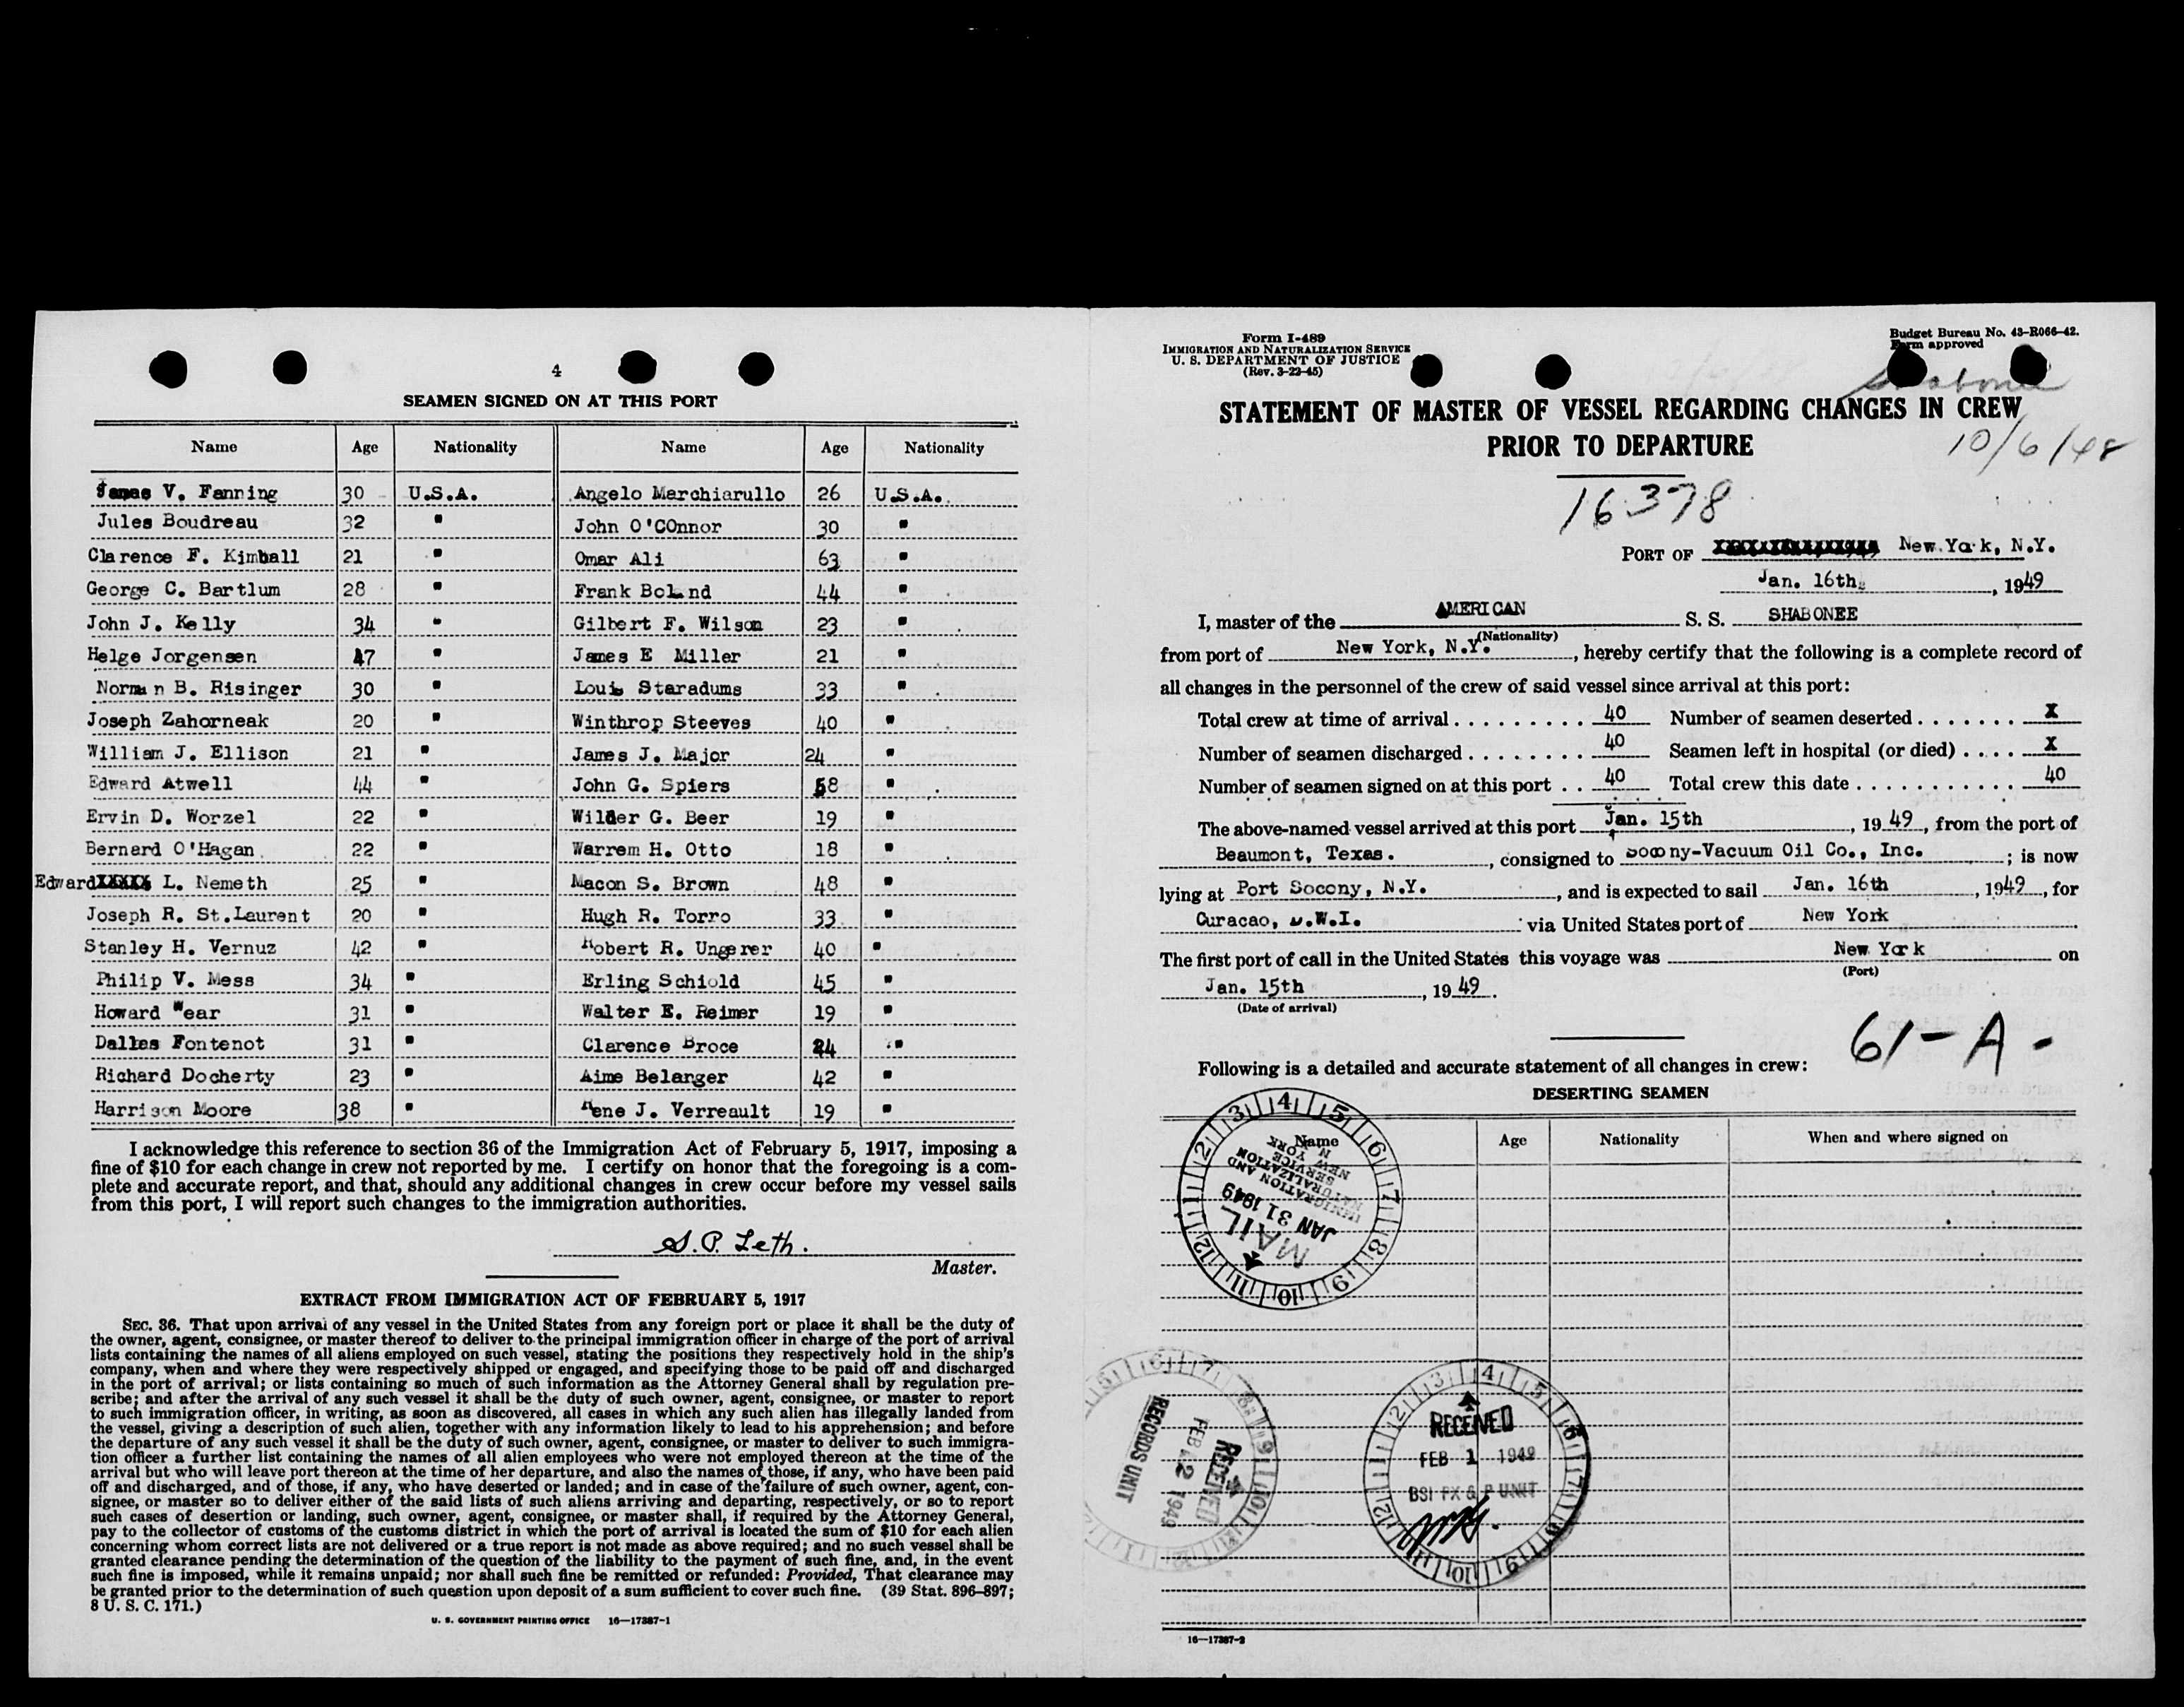 4
SEAMEN SIGNED ON AT THIS PORT
Name Age Nationality Name Age Nationality
James V. Fanning 30 U.S.A. Angelo Marchiarullo 26 U.S.A.
Jules Boudreau 32 " John O'COnnor 30 "
Clarence F. Kimball 21 " Omar Ali 63 "
George C. Bartlum 28 " Frank Bolnd 44 "
John J. Kelly 34 " Gilbert F. Wilson 23 "
Helge Jorgensen 47 " James E Miller 21 "
Norman B. Risinger 30 " Louis Staradums 33 "
Joseph Zahorneak 20 " Winthrop Steeves 40 "
William J. Ellison 21 " James J. Major 24 "
Edward Atwell 44 " John G. Spiers 58 "
Ervin D. Worzel 22 " Wilder G. Beer 19 "
Bernard O'Hagan 22 " Warrem H. Otto 18 "
Edward L. Nemeth 25 " Macon S. Brown 48 "
Joseph R. St.Laurent 20 " Hugh R. Torro 33 "
Stanley H. Vernuz 42 " Robert R. Ungerer 40 "
Philip V. Mess 34 " Erling Schiold 45 "
Howard Wear 31 " Walter E. Reimer 19 "
Dallas Fontenot 31 " Clarence Broce 24 "
Richard Docherty 23 " Aime Belanger 42 "
Harrison Moore 38 " Rene J. Verreault 19 "
I acknowledge this reference to section 36 of the Immigration Act of February 5, 1917, imposing a
fine of $10 for each change in crew not reported by me. I certify on honor that the foregoing is a com-
plete and accurate report, and that, should any additional changes in crew occur before my vessel sails
from this port, I will report such changes to the immigration authorities.
S. P. Leth.
Master.
EXTRACT FROM IMMIGRATION ACT OF FEBRUARY 5, 1917
SEC. 36. That upon arrival of any vessel in the United States from any foreign port or place it shall be the duty of
the owner, agent, consignee, or master thereof to deliver to the principal immigration officer in charge of the port of arrival
lists containing the names of all aliens employed on such vessel, stating the positions they respectively hold in the ship's
company, when and where they were respectively shipped or engaged, and specifying those to be paid off and discharged
in the port of arrival; or lists containing so much of such information as the Attorney General shall by regulation pre-
scribe; and after the arrival of any such vessel it shall be the duty of such owner, agent, consignee, or master to report
to such immigration officer, in writing, as soon as discovered, all cases in which any such alien has illegally landed from
the vessel, giving a description of such alien, together with any information likely to lead to his apprehension; and before
the departure of any such vessel it shall be the duty of such owner, agent, consignee, or master to deliver to such immigra-
tion officer a further list containing the names of all alien employees who were not employed thereon at the time of the
arrival but who will leave port thereon at the time of her departure, and also the names of those, if any, who have been paid
off and discharged, and of those, if any, who have deserted or landed; and in case of the failure of such owner, agent, con-
signee, or master so to deliver either of the said lists of such aliens arriving and departing, respectively, or so to report
such cases of desertion or landing, such owner, agent, consignee, or master shall, if required by the Attorney General,
pay to the collector of customs of the customs district in which the port of arrival is located the sum of $10 for each alien
concerning whom correct lists are not delivered or a true report is not made as above required; and no such vessel shall be
granted clearance pending the determination of the question of the liability to the payment of such fine, and, in the event
such fine is imposed, while it remains unpaid; nor shall such fine be remitted or refunded: Provided, That clearance may
be granted prior to the determination of such question upon deposit of a sum sufficient to cover such fine. (39 Stat. 896-897;
8 U. S. C. 171.)
U. S. GOVERNMENT PRINTING OFFICE 16—17387-1
Form I-489
IMMIGRATION AND NATURALIZATION SERVICE
U. S. DEPARTMENT OF JUSTICE
(Rev. 3-22-45)
Budget Bureau No. 43-R066-42.
Form approved
Shabonee
STATEMENT OF MASTER OF VESSEL REGARDING CHANGES IN CREW
PRIOR TO DEPARTURE
10/6/48
16378
PORT OF New York, N.Y.
Jan. 16th, 1949
I, master of the AMERICAN S. S. SHABONEE
(Nationality)
from port of New York, N.Y., hereby certify that the following is a complete record of
all changes in the personnel of the crew of said vessel since arrival at this port:
Total crew at time of arrival 40 Number of seamen deserted X
Number of seamen discharged 40 Seamen left in hospital (or died) X
Number of seamen signed on at this port 40 Total crew this date 40
The above-named vessel arrived at this port Jan. 15th, 1949, from the port of
Beaumont, Texas., consigned to Socony-Vacuum Oil Co., Inc.; is now
lying at Port Socony, N.Y., and is expected to sail Jan. 16th, 1949, for
Curacao, D.W.I. via United States port of New York
The first port of call in the United States this voyage was New York on
(Port)
Jan. 15th, 1949.
(Date of arrival)
61-A-
Following is a detailed and accurate statement of all changes in crew:
DESERTING SEAMEN
Name Age Nationality When and where signed on
MAIL
JAN 31 1949
IMMIGRATION AND
NATURALIZATION
SERVICE
NEW YORK
RECEIVED
FEB 2 1949
RECORDS UNIT
RECEIVED
FEB 1 1949
BSI FX & P UNIT
16—17387-2